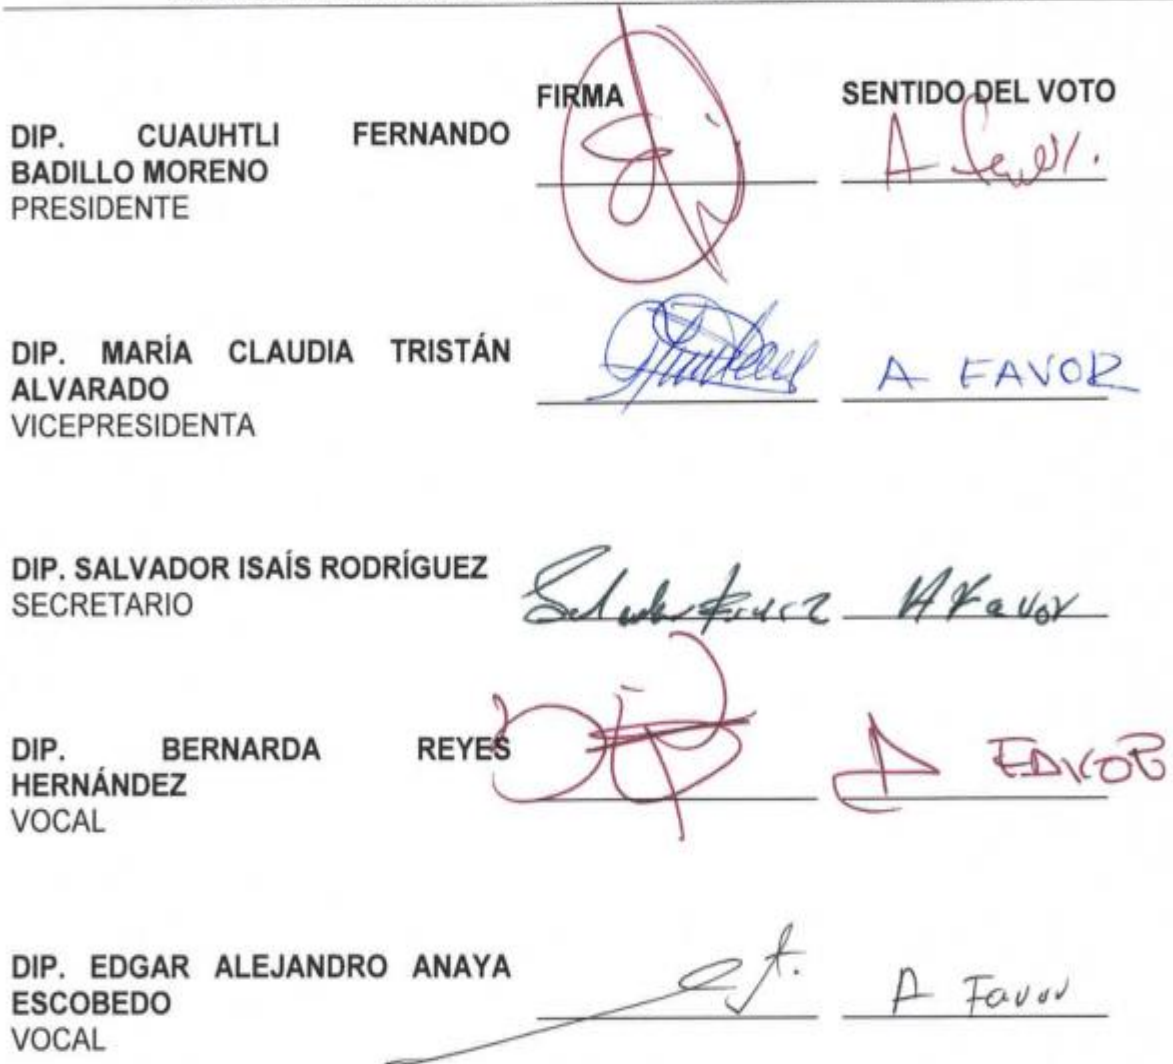 FIRMA SENTIDO DEL VOTO
DIP. CUAUHTLI FERNANDO
BADILLO MORENO
PRESIDENTE
A
DIP. MARÍA CLAUDIA TRISTÁN
ALVARADO
VICEPRESIDENTA
A FAVOR
DIP. SALVADOR ISAÍS RODRÍGUEZ
SECRETARIO
A Favor
DIP. BERNARDA REYES
HERNÁNDEZ
VOCAL
A FAVOR
DIP. EDGAR ALEJANDRO ANAYA
ESCOBEDO
VOCAL
A Favor